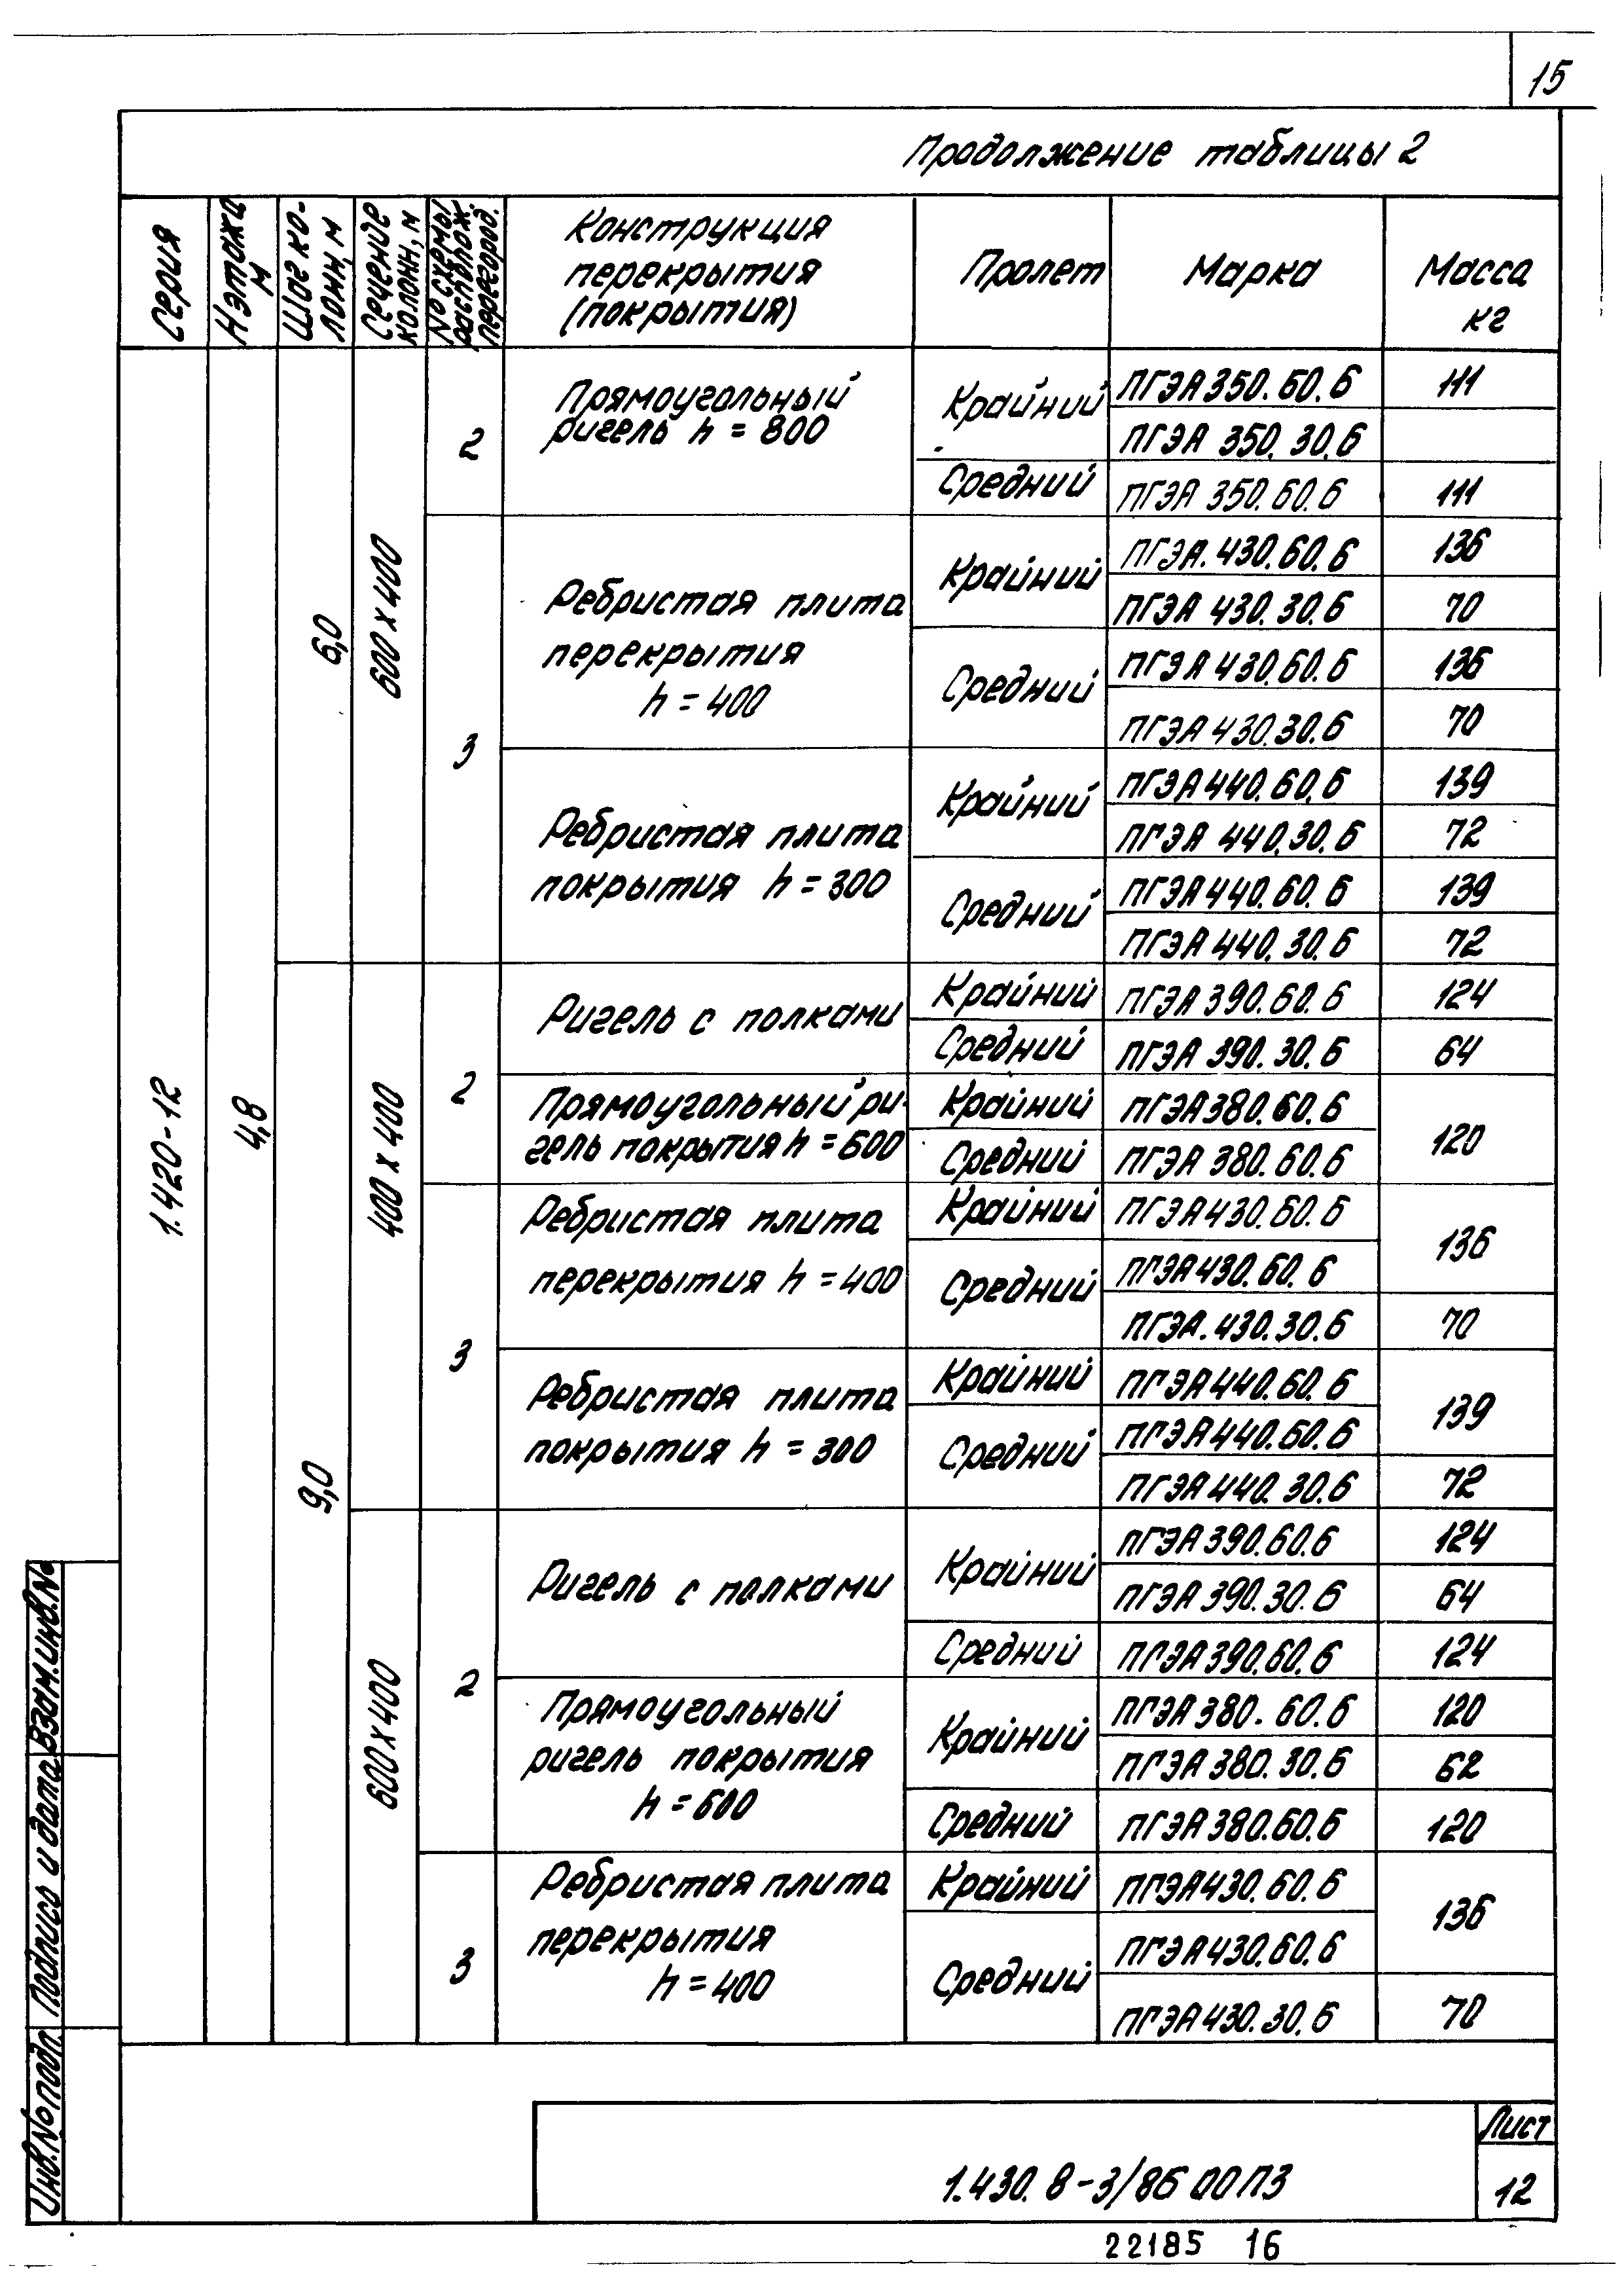 15
Продолжение таблицы 2
Серия
Нэтажа м
Шаг ко-
лонн, м
Сечение
колонн, м
№ схемы
располож.
перегород.
Конструкция
перекрытия
(покрытия)
Пролет
Марка
Масса
кг
1.420-12
4,8
6,0
600 х 400
2
Прямоугольный
ригель h = 800
Крайний
ПГЭА 350.60.6
111
ПГЭА 350.30.6
Средний
ПГЭА 350.60.6
111
3
Ребристая плита
перекрытия
h = 400
Крайний
ПГЭА.430.60.6
136
ПГЭА 430.30.6
70
Средний
ПГЭА 430.60.6
136
ПГЭА 430.30.6
70
Ребристая плита
покрытия h = 300
Крайний
ПГЭА 440.60.6
139
ПГЭА 440.30.6
72
Средний
ПГЭА 440.60.6
139
ПГЭА 440.30.6
72
9,0
400 х 400
2
Ригель с полками
Крайний
ПГЭА 390.60.6
124
Средний
ПГЭА 390.30.6
64
Прямоугольный ри-
гель покрытия h = 600
Крайний
ПГЭА 380.60.6
120
Средний
ПГЭА 380.60.6
3
Ребристая плита
перекрытия h = 400
Крайний
ПГЭА 430.60.6
136
Средний
ПГЭА 430.60.6
ПГЭА.430.30.6
70
Ребристая плита
покрытия h = 300
Крайний
ПГЭА 440.60.6
139
Средний
ПГЭА 440.60.6
ПГЭА 440.30.6
72
600 х 400
2
Ригель с полками
Крайний
ПГЭА 390.60.6
124
ПГЭА 390.30.6
64
Средний
ПГЭА 390.60.6
124
Прямоугольный
ригель покрытия
h = 600
Крайний
ПГЭА 380.60.6
120
ПГЭА 380.30.6
62
Средний
ПГЭА 380.60.6
120
3
Ребристая плита
перекрытия
h = 400
Крайний
ПГЭА 430.60.6
136
Средний
ПГЭА 430.60.6
ПГЭА 430.30.6
70
Взам.инв.№
Подпись и дата
Инв.№ подл.
1.430.8-3/86 00ПЗ
Лист
12
22185 16